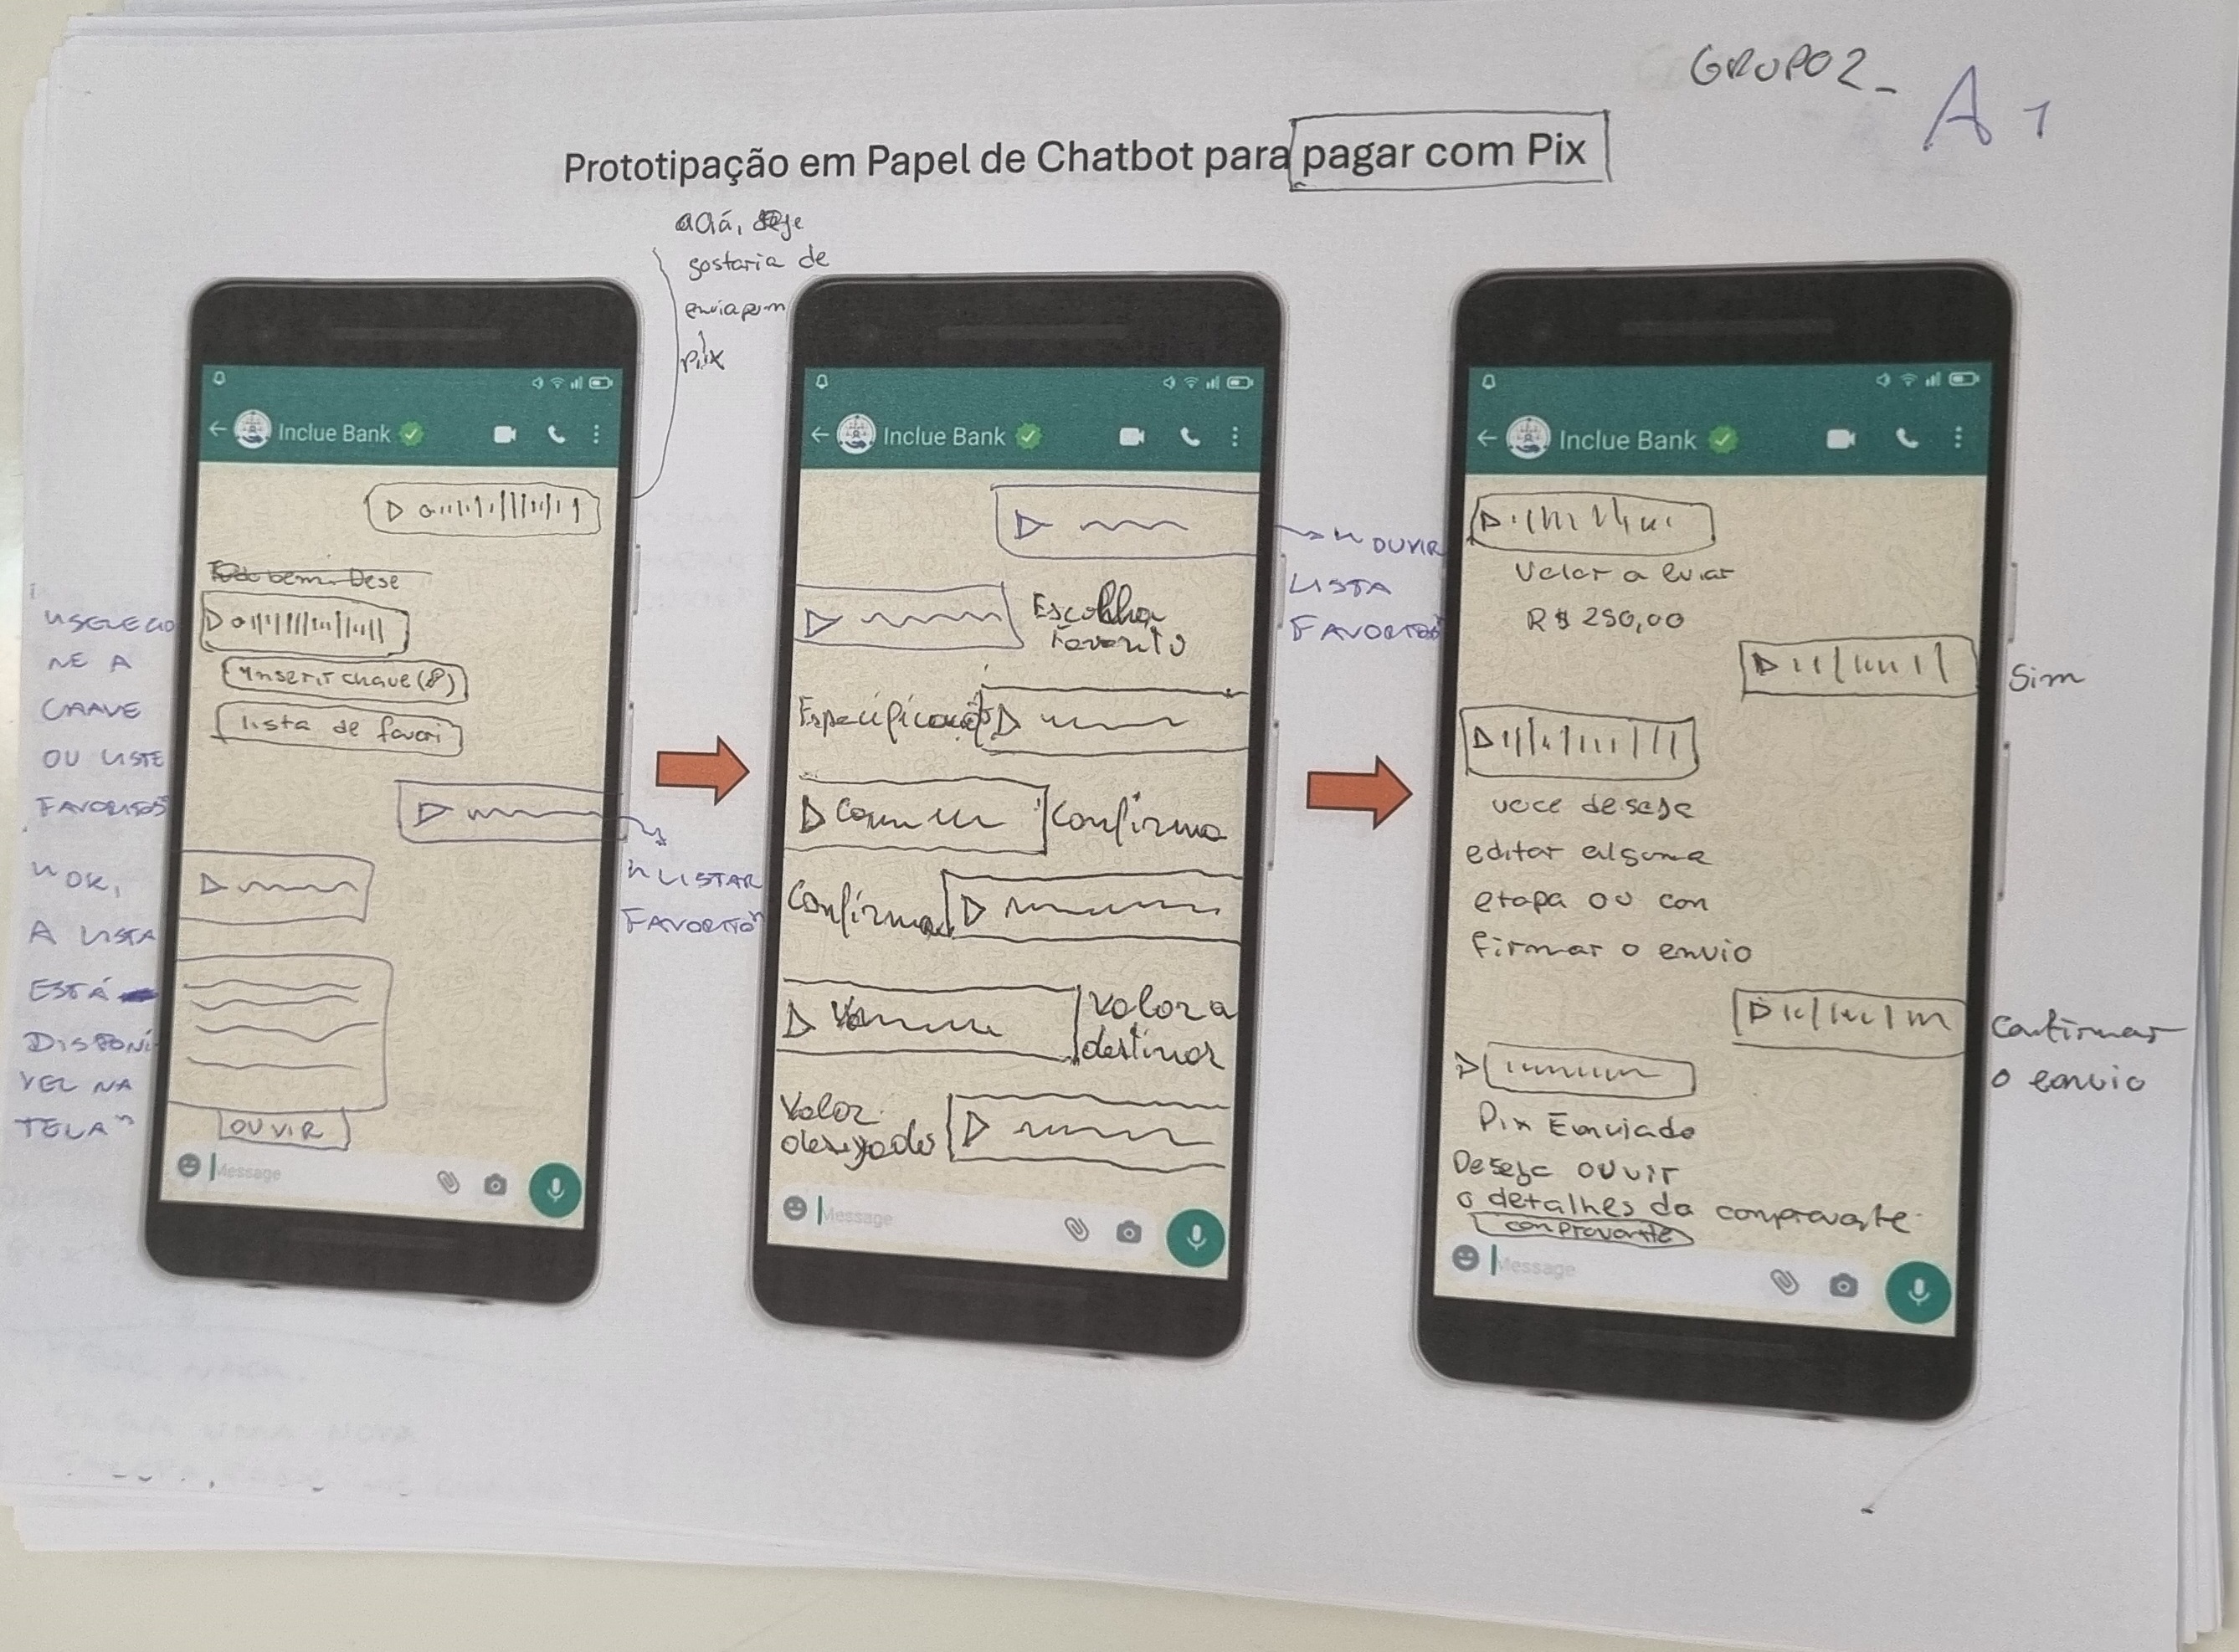 GRUPO2_ A1
Prototipação em Papel de Chatbot para pagar com Pix
gostaria de
pix
Inclue Bank
"SELECIO
NE A
CHAVE
OU LISTE
FAVORITOS
inserir chave (P)
lista de favori
"LISTAR
FAVORITO"
"OK,
A LISTA
ESTÁ
DISPONÍ
VEL NA
TELA"
OUVIR
Message
Inclue Bank
"OUVIR
LISTA
FAVORITOS"
Escolha
Favorito
Confirma
Confirma
Valor a
destinar
Valor
desejado
Message
Inclue Bank
Valor a
R$ 250,00
Sim
voce deseja
editar alguma
etapa ou con
firmar o envio
Confirmar
o envio
Pix Enviado
Deseja ouvir
o detalhes do comprovante
comprovante
Message